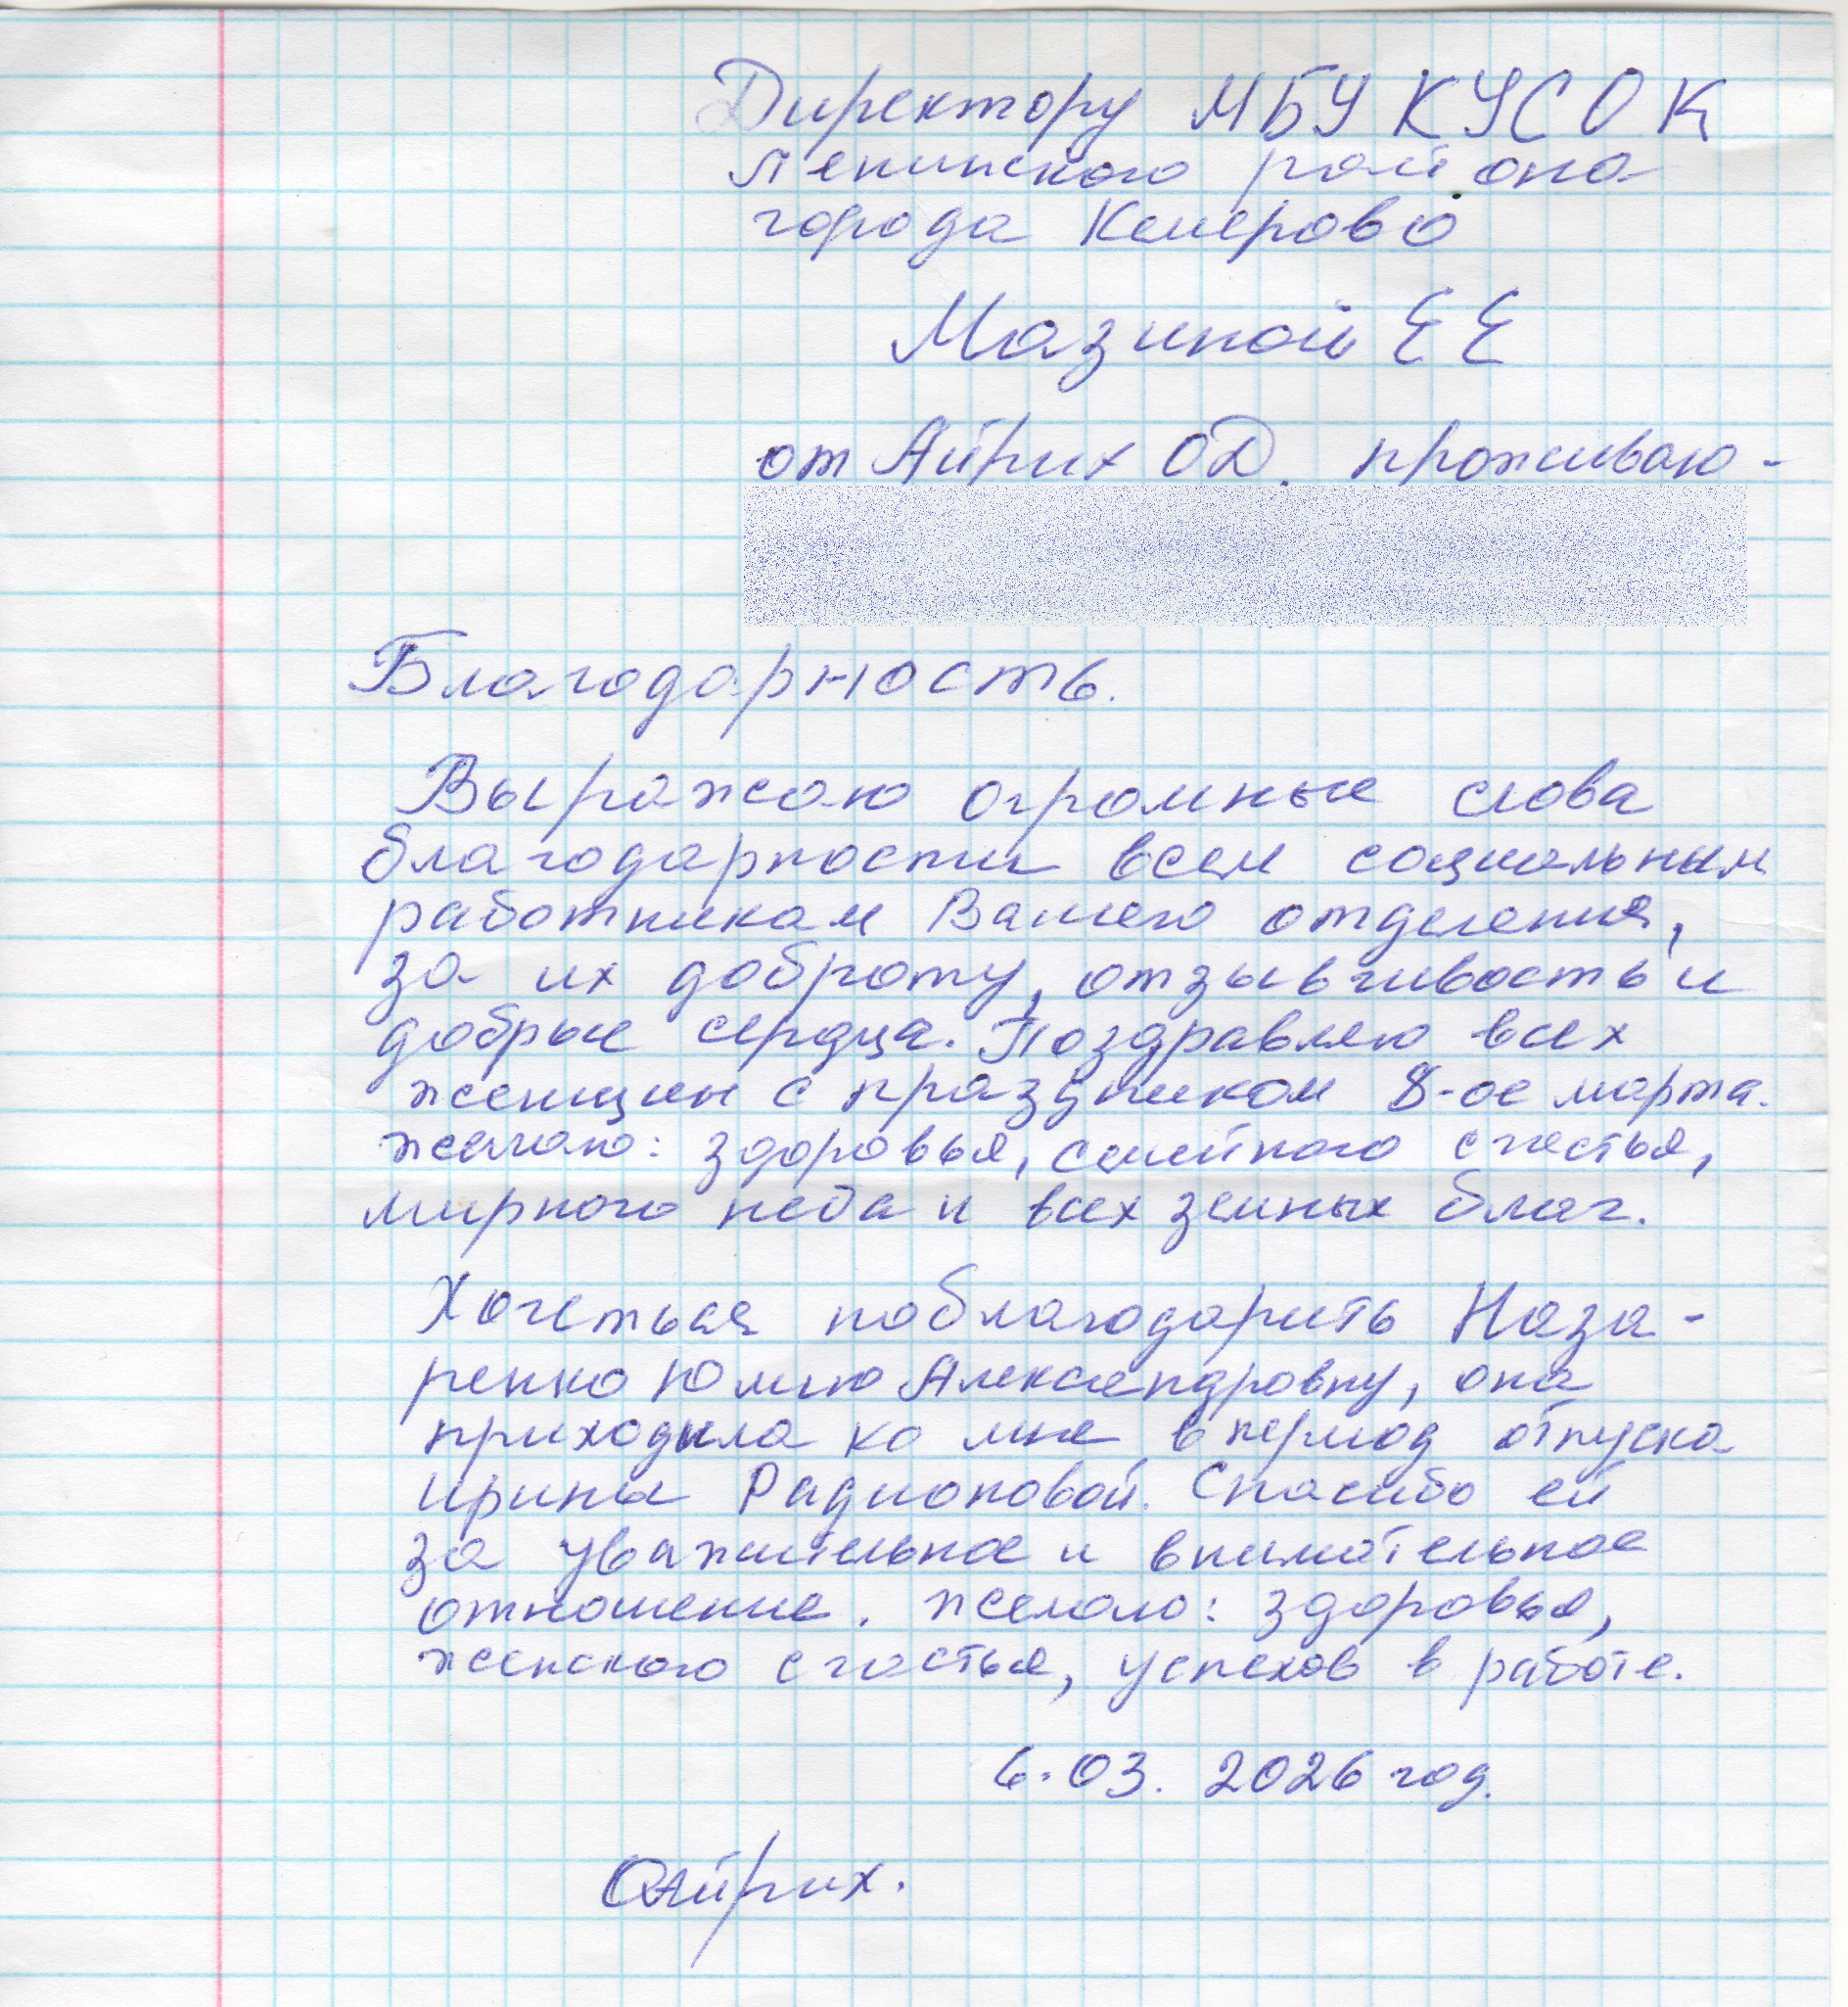 Директору МБУ КУСОК
Ленинского района
города Кемерово
Мазиной ЕЕ
от Айрих ОД. проживаю-
Благодарность.
Выражаю огромные слова
благодарности всем социальным
работникам Вашего отделения,
за их доброту, отзывчивость и
добрые сердца. Поздравляю всех
женщин с праздником 8-ое марта.
желаю: здоровья, семейного счастья,
мирного неба и всех земных благ.
Хочеться поблагодарить Наза-
ренко Юлию Александровну, она
приходила ко мне в период отпуска
Ирины Радионовой. Спасибо ей
за уважительное и внимательное
отношение. желаю: здоровья,
женского счастья, успехов в работе.
6.03. 2026 год.
ОАйрих.